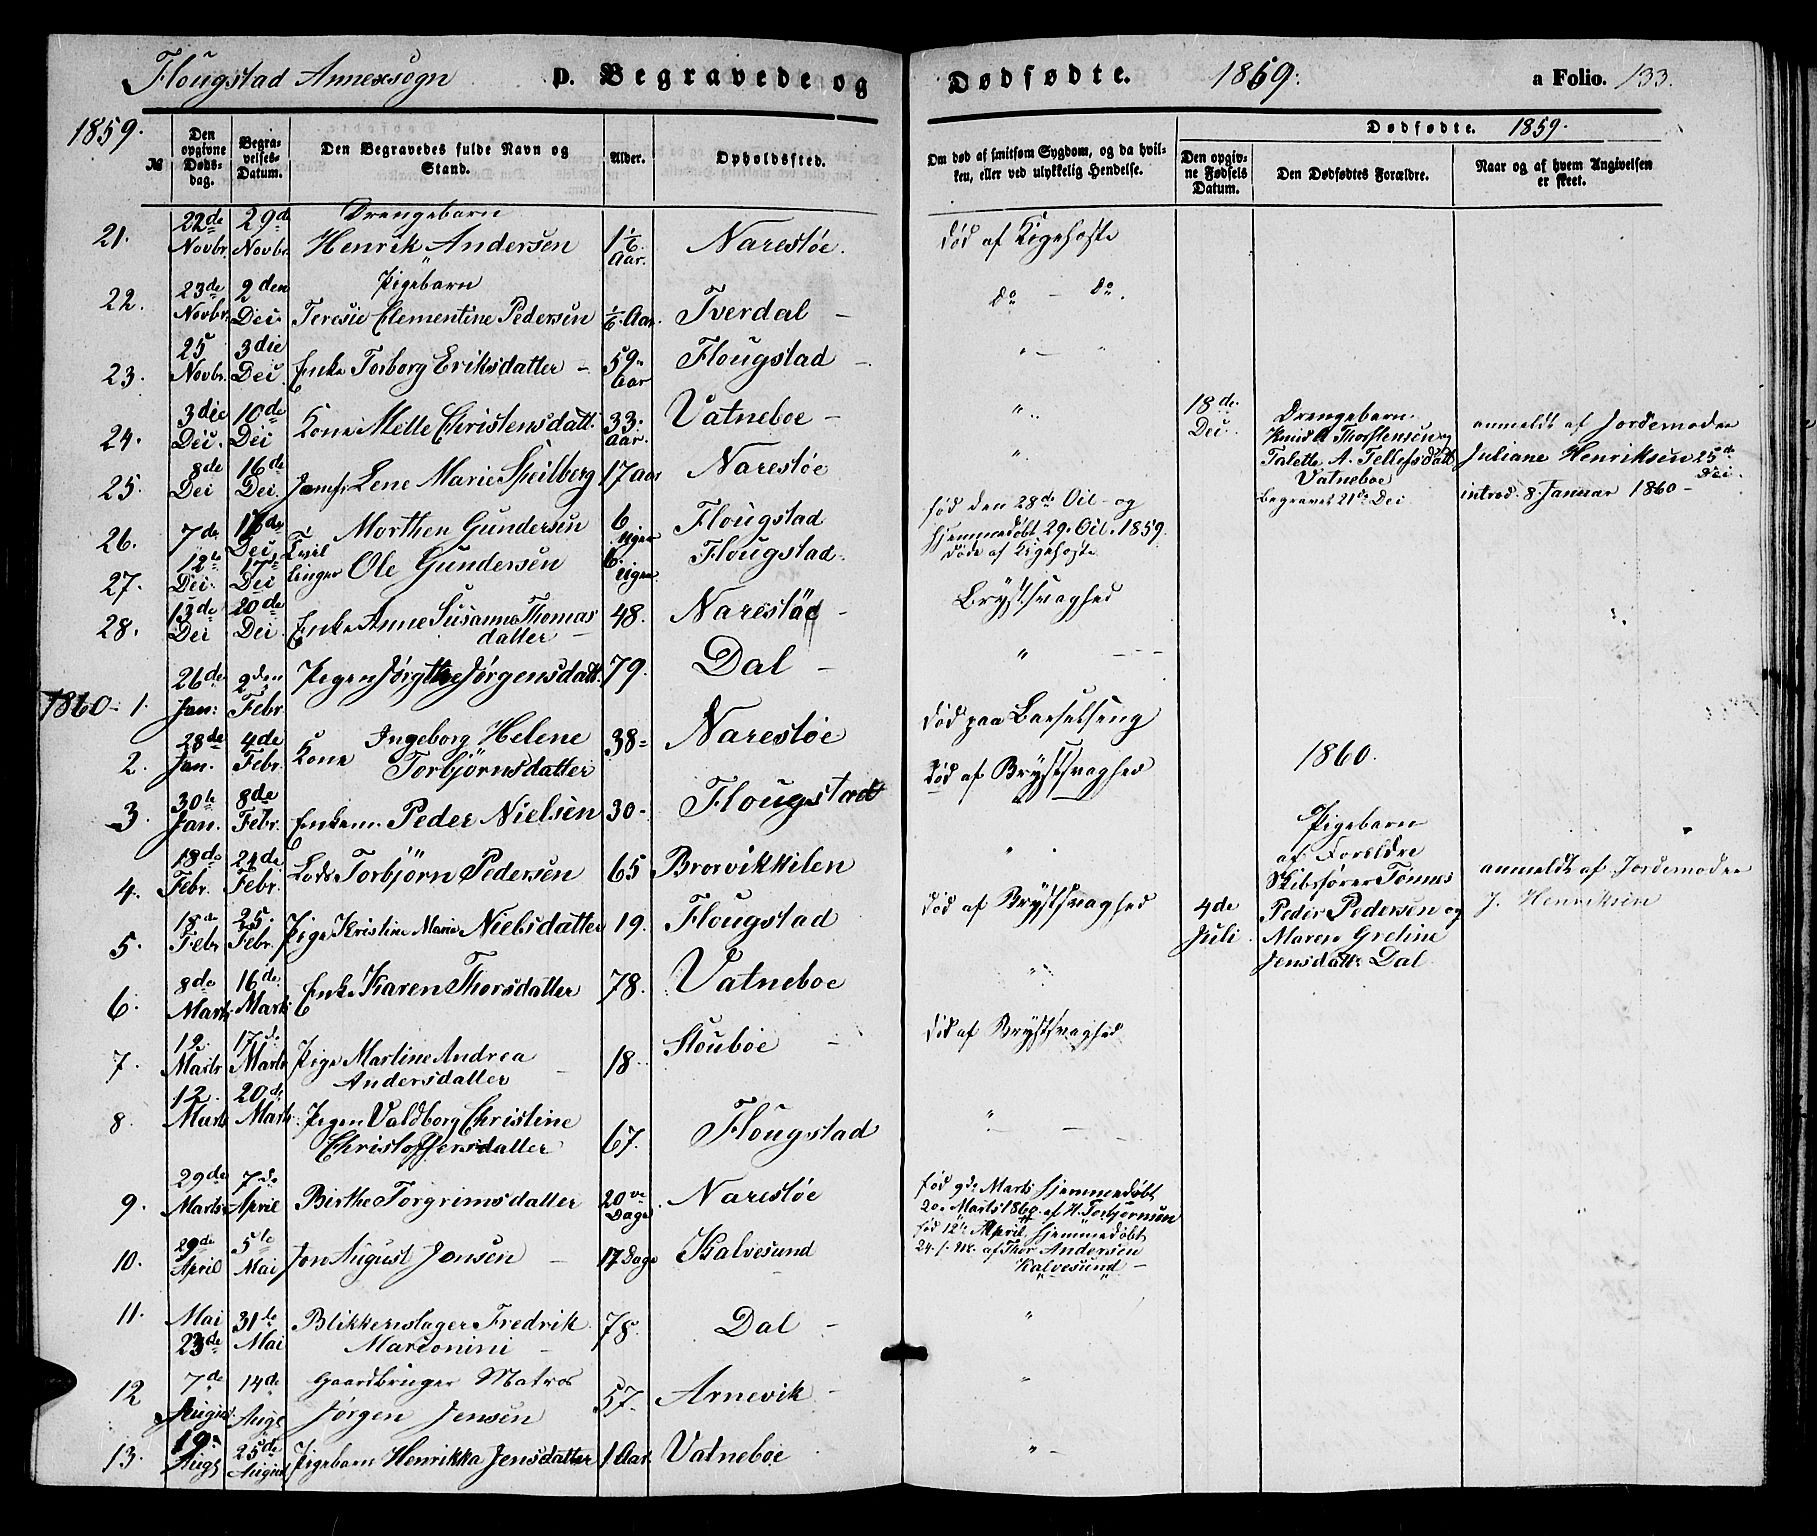 Flougstad Annexsogn
D. Begravede og
Dødfødte.
1859.
a Folio. 133.
1859.
№
Den opgivne Døds-dag.
Begra-velses-Datum.
Den Begravedes fulde Navn og Stand.
Alder.
Opholdssted.
Om død af smitsom Sygdom, og da hvil-ken, eller ved ulykkelig Hendelse.
Dødfødte. 1859.
Den opgiv-ne Fødsels Datum.
Den Dødfødtes Forældre.
Naar og af hvem Angivelsen er skeet.
21. 22de Novbr. 29de Novbr. Drengebarn
Henrik Andersen 1 1/6 Aar. Narestøe. død af Kigehoste
22. 23de Novbr. 2den Dec. Pigebarn
Teresie Clementine Pedersen 1/6 Aar. Tverdal – do – do.
23. 25 Novbr. 3die Dec. Enke Torborg Eriksdatter – 59 Aar Flougstad – " – "
24. 3die Dec. 10de Dec Kone Mette Christensdatt. 33 Aar. Vatneboe – "
25. 8de Dec 16de Dec. Jomfr. Lene Marie Speilberg 17 Aar Narestøe "
18de Dec.
Drengebarn.
Knud A Thorstensen og
Talette A. Tellefsdatt.
Vatneboe
Begravet 21de Dec
anmeldt af Jordemoder
Juliane Henriksen 25de Dec.
introd. 8. Januar 1860 –
26. 7de Dec 16de Dec. Tvil Morthen Gundersen 6 Uger Flougstad
27. 12te Dec. 17de Dec linger Ole Gundersen 6. Uger Flougstad.
født den 28de Oct. og
hjemmedøbt 29. Oct. 1859.
døde af Kigehoste
28. 13de Dec 20de Dec. Enke Anne Susanne Thomas
datter – 48. Narestøe – Brystsvaghed
1860 – 1. 26de Jan: 2den Febr. Pigen Jørgthe Jørgensdatt. 79. Dal – "
2. 28de Jan. 4de Febr. Kone Ingeborg Helene
Torbjørnsdatter 38 Narestøe død paa Barselseng
3. 30te Jan. 8de Febr. Enkem. Peder Nielsen 30 – Flougstad død af Brystsvaghed
4. 18de Febr. 24de Febr. Lods Torbjørn Pedersen 65 Brorvikkilen " "
5. 18de Febr 25. Febr. Pige Kristine Marie Nielsdatter 19. Flougstad død af Brystsvaghed
1860.
4de Juli
Pigebarn
af Foreldre
Skibsfører Tønnes
Peder Pedersen og
Maren Greline
Jensdatt. Dal
anmeldt af Jordemoder
J. Henriksen
6. 8de Marts 16de Marts Enke Karen Thorsdatter 78. Vatneboe "
7. 12. Marts 17de Marts Pige Martine Andrea
Andersdatter – 18. Stouboe – død af Brystsvaghed
8. 12. Marts 20de Marts. Pigen Valdborg Christine
Christoffersdatter 67. Flougstad "
9. 29de Marts 7de April Birthe Torgrimsdatter 20ve Dage Narestøe
født 9de Marts hjemmedøbt
20. Marts 1860 af H. Torbjørnsen
10. 29de April 5te Mai Jon August Jonsen – 17 Dage Kalvesund
fød 12te April hjemmedøbt
24. s. M. af Thor Andersen
Kalvesund –
11. Mai 23de 31te Mai Blikkenslager Fredrik
Marconini – 78. Dal – "
12 7de August. 14de Aug. Gaardbruger Matros
Jørgen Jensen 57. Arnevik – "
13. 19. Aug. 25de August Pigebarn Henrikka Jensdatter 1 Aar. Vatneboe "